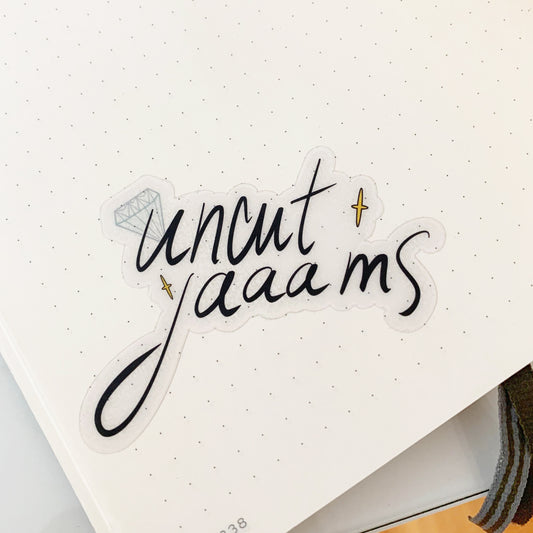 uncut
jaaams
238